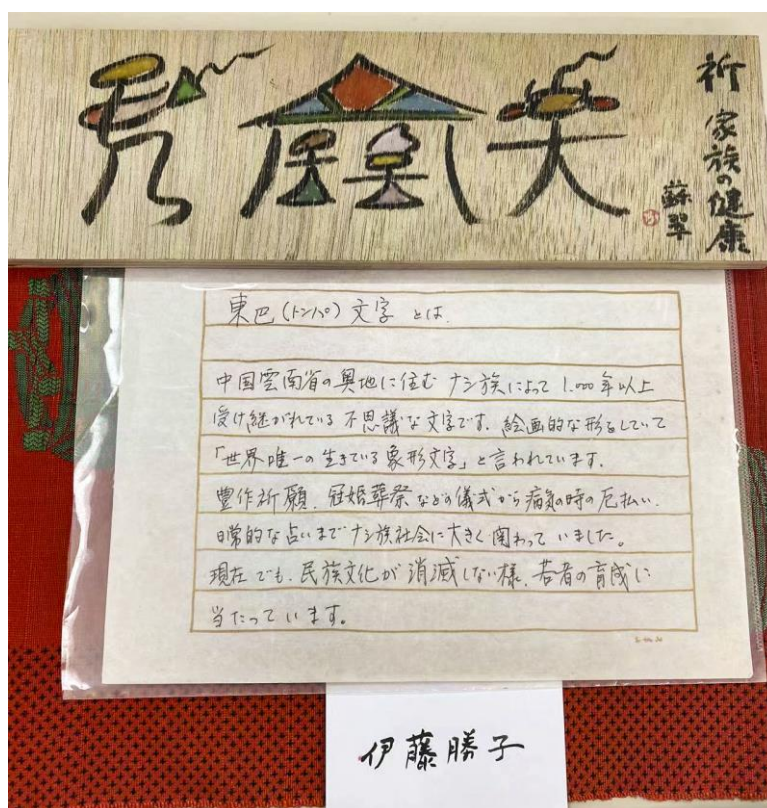 祈 家族の健康
蘇翠
東巴(トンパ)文字 とは、
中国雲南省の奥地に住む ナシ族によって 1.000年以上
受け継がれている 不思議な文字です。絵画的な形をしていて
「世界唯一の生きている象形文字」と言われています。
豊作祈願、冠婚葬祭などの儀式から病気の時の厄払い、
日常的な占いまでナシ族社会に大きく関わっていました。
現在でも、民族文化が消滅しない様、若者の育成に
当たっています。
伊藤勝子